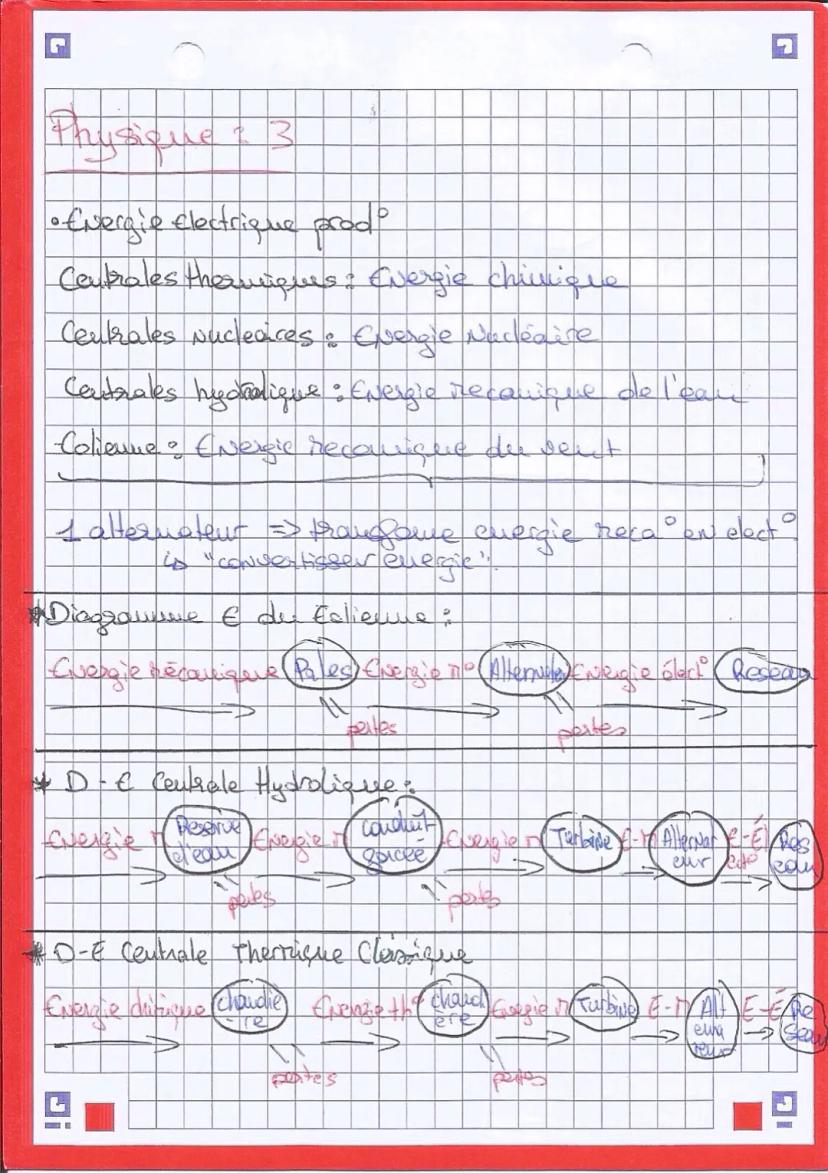 Physique : 3
• Energie Electrique prod°
Centrales thermiques : Energie chimique
Centrales nucleaires : Energie Nucléaire
Centrales hydrolique : Energie mecanique de l'eau
Eolienne : Energie mecanique du vent
1 alternateur => transforme energie meca° en elect°
↳ "convertisser energie".
* Diagramme E du Eolienne :
Energie mécanique Pales Energie m° Alternateur Energie élect° Reseau
pertes pertes
* D-E Centrale Hydrolique :
Energie m Reserve d'eau Energie m conduit forcée Energie m Turbine E-M Alternateur E-É lct° Reseau
pertes pertes
* D-E Centrale Thermique Classique
Energie chimique chaudière Energie th° chaudière Energie m Turbine E-M Alternateur E-É Reseau
pertes pertes